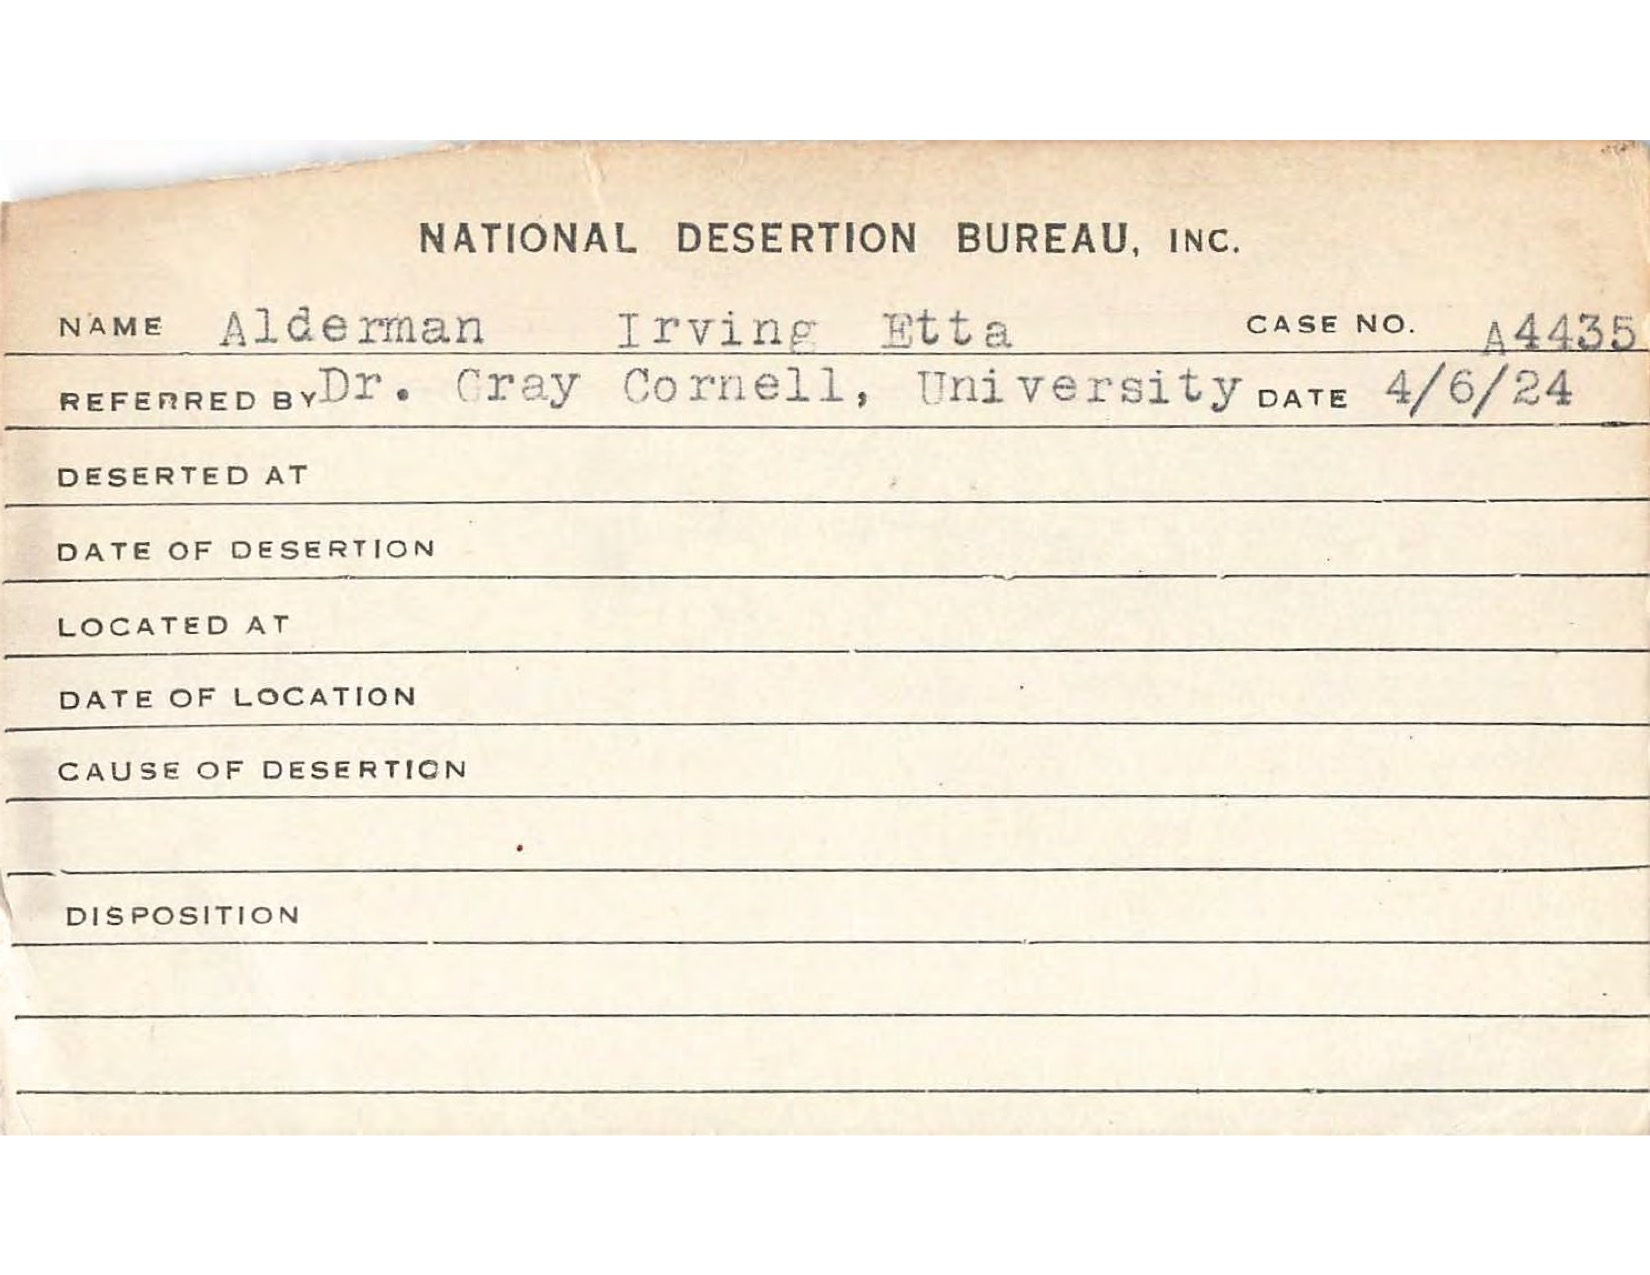 NATIONAL DESERTION BUREAU, INC.
NAME Alderman Irving Etta CASE NO. A4435
REFERRED BY Dr. Gray Cornell, University DATE 4/6/24
DESERTED AT
DATE OF DESERTION
LOCATED AT
DATE OF LOCATION
CAUSE OF DESERTION
DISPOSITION